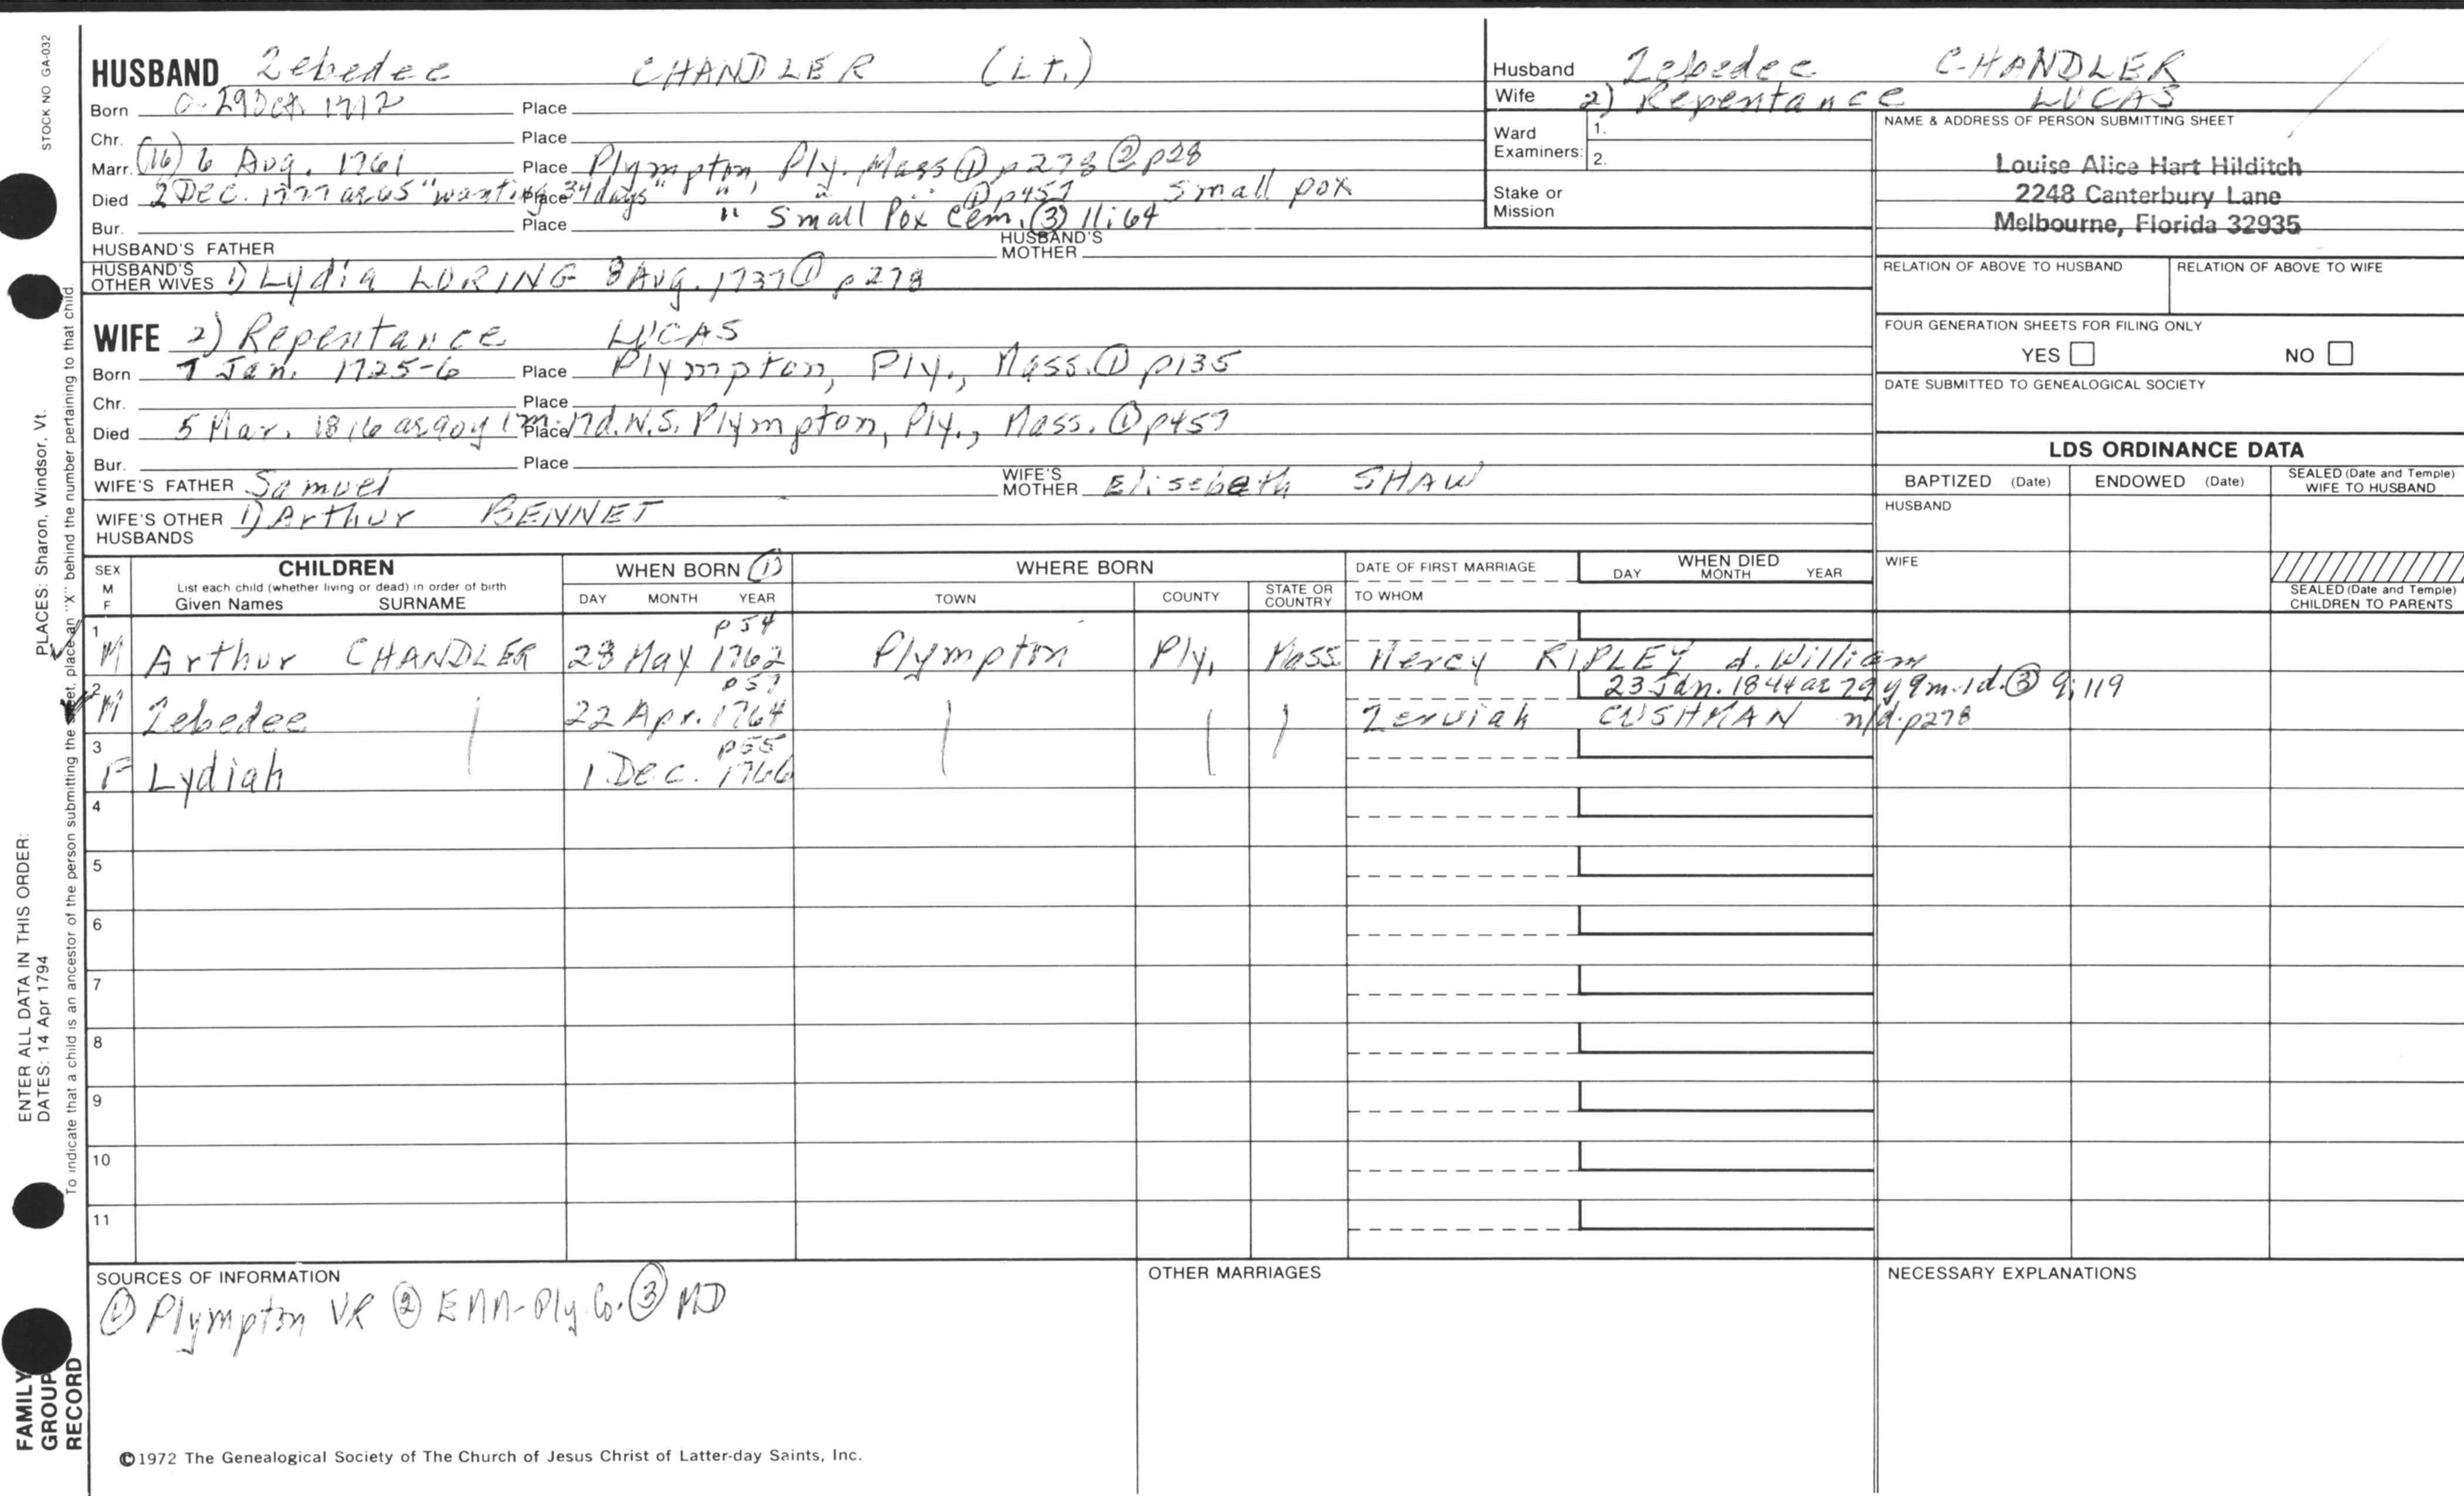 STOCK NO GA-032
HUSBAND Zebedee CHANDLER (Lt.)
Born c-29 Oct 1712 Place
Chr. Place
Marr. (16) 6 Aug. 1761 Place Plympton, Ply. Mass ① p278 ② p28
Died 2 Dec. 1777 ae 65 "wanting 34 days" Place " " " ① p457 Small pox
Bur. Place " Small Pox Cem. ③ 11:64
HUSBAND'S FATHER HUSBAND'S MOTHER
HUSBAND'S OTHER WIVES 1) Lydia LORING 8 Aug. 1737 ① p278
WIFE 2) Repentance LUCAS
Born 7 Jan. 1725-6 Place Plympton, Ply., Mass. ① p135
Chr. Place
Died 5 Mar. 1816 ae 90y 1m 17d. N.S. Place Plympton, Ply., Mass. ① p457
Bur. Place
WIFE'S FATHER Samuel WIFE'S MOTHER Elisebeth SHAW
WIFE'S OTHER HUSBANDS 1) Arthur BENNET
Husband Zebedee CHANDLER
Wife 2) Repentance LUCAS
Ward Examiners: 1.
2.
Stake or Mission
NAME & ADDRESS OF PERSON SUBMITTING SHEET
Louise Alice Hart Hilditch
2248 Canterbury Lane
Melbourne, Florida 32935
RELATION OF ABOVE TO HUSBAND RELATION OF ABOVE TO WIFE
FOUR GENERATION SHEETS FOR FILING ONLY
YES NO
DATE SUBMITTED TO GENEALOGICAL SOCIETY
LDS ORDINANCE DATA
BAPTIZED (Date) ENDOWED (Date) SEALED (Date and Temple) WIFE TO HUSBAND
HUSBAND
WIFE
SEALED (Date and Temple) CHILDREN TO PARENTS
SEX M F
CHILDREN
List each child (whether living or dead) in order of birth
Given Names SURNAME
WHEN BORN ①
DAY MONTH YEAR
WHERE BORN
TOWN COUNTY STATE OR COUNTRY
DATE OF FIRST MARRIAGE
TO WHOM
WHEN DIED
DAY MONTH YEAR
p54
1 M Arthur CHANDLER 28 May 1762 Plympton Ply. Mass Mercy RIPLEY d. William
p57 23 Jan. 1844 ae 79y 9m 1d. ③ 9:119
2 M Zebedee 22 Apr. 1764 Zerviah CUSHMAN n/d. p278
p55
3 F Lydiah 1 Dec. 1766
4
5
6
7
8
9
10
11
SOURCES OF INFORMATION
① Plympton VR ② EMM-Ply Co. ③ MD
OTHER MARRIAGES
NECESSARY EXPLANATIONS
©1972 The Genealogical Society of The Church of Jesus Christ of Latter-day Saints, Inc.
PLACES: Sharon, Windsor, Vt.
ENTER ALL DATA IN THIS ORDER:
DATES: 14 Apr 1794
To indicate that a child is an ancestor of the person submitting the sheet, place an "X" behind the number pertaining to that child.
FAMILY
GROUP
RECORD